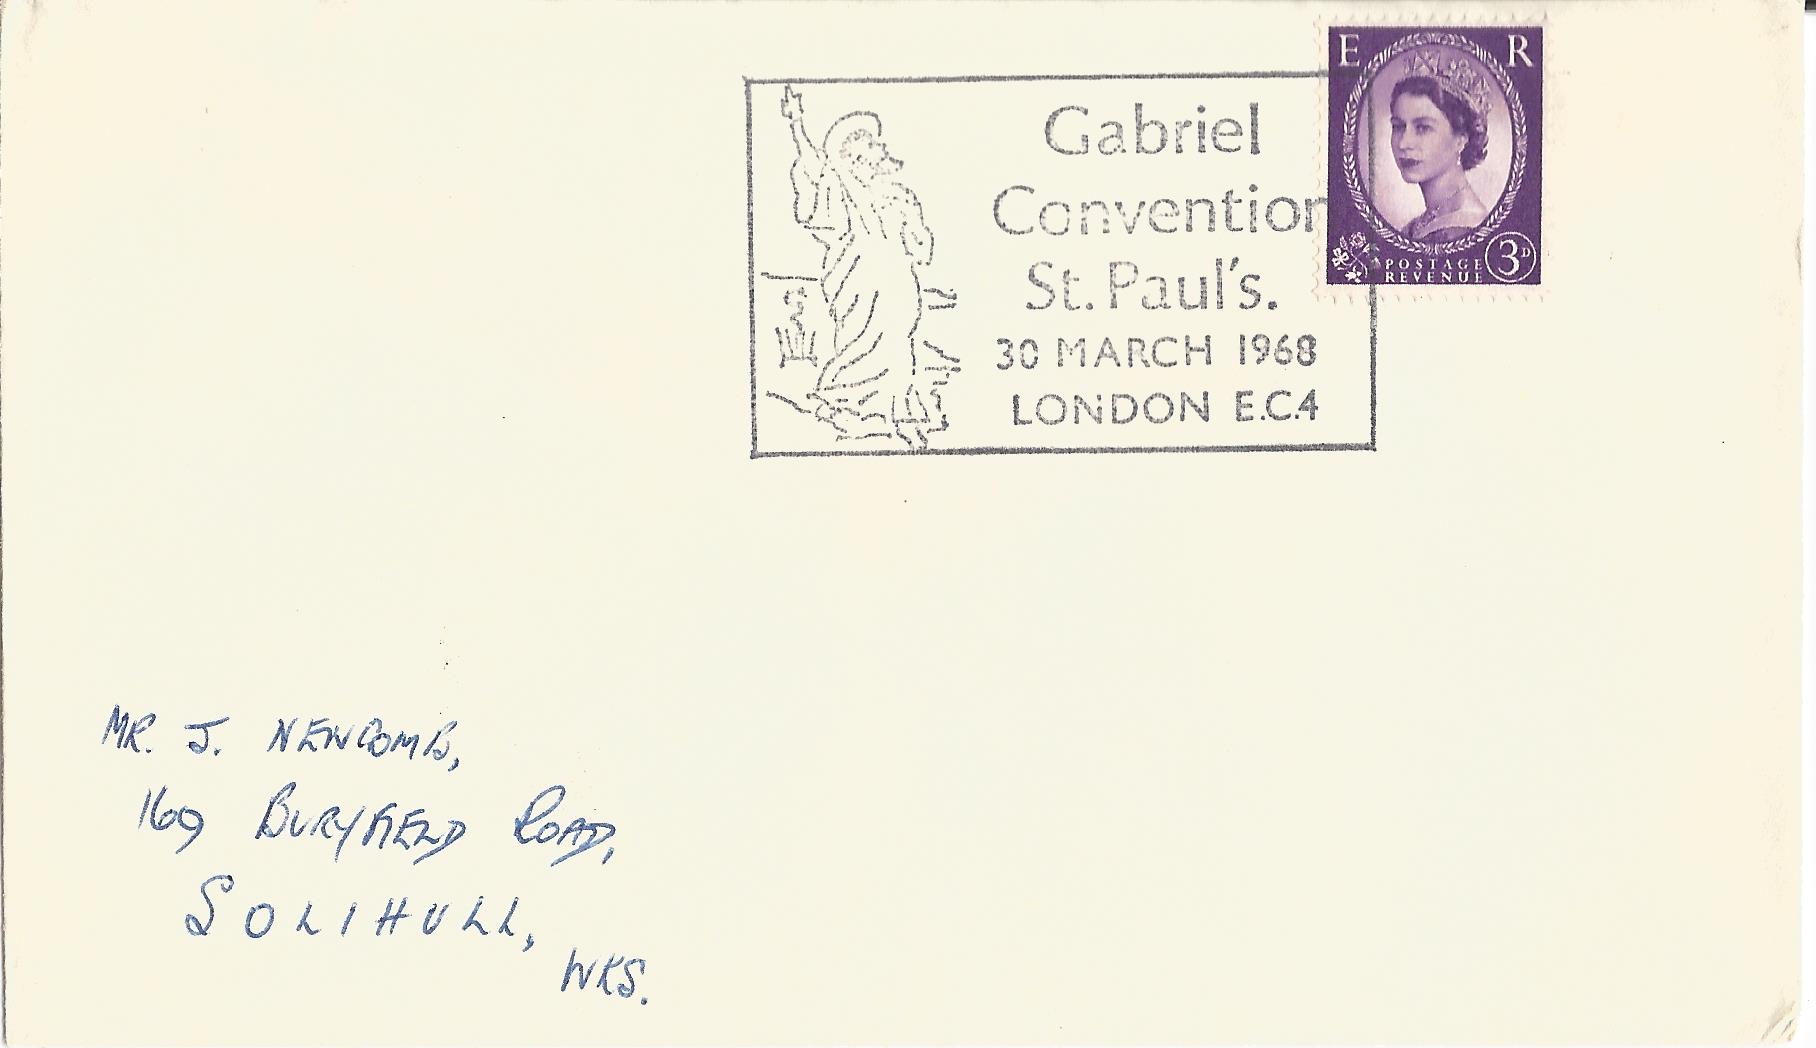 Gabriel
Convention
St. Paul's.
30 MARCH 1968
LONDON E.C.4
E R
POSTAGE
REVENUE
3D
MR. J. NEWCOMB,
169 BURYFIELD ROAD,
SOLIHULL,
WKS.